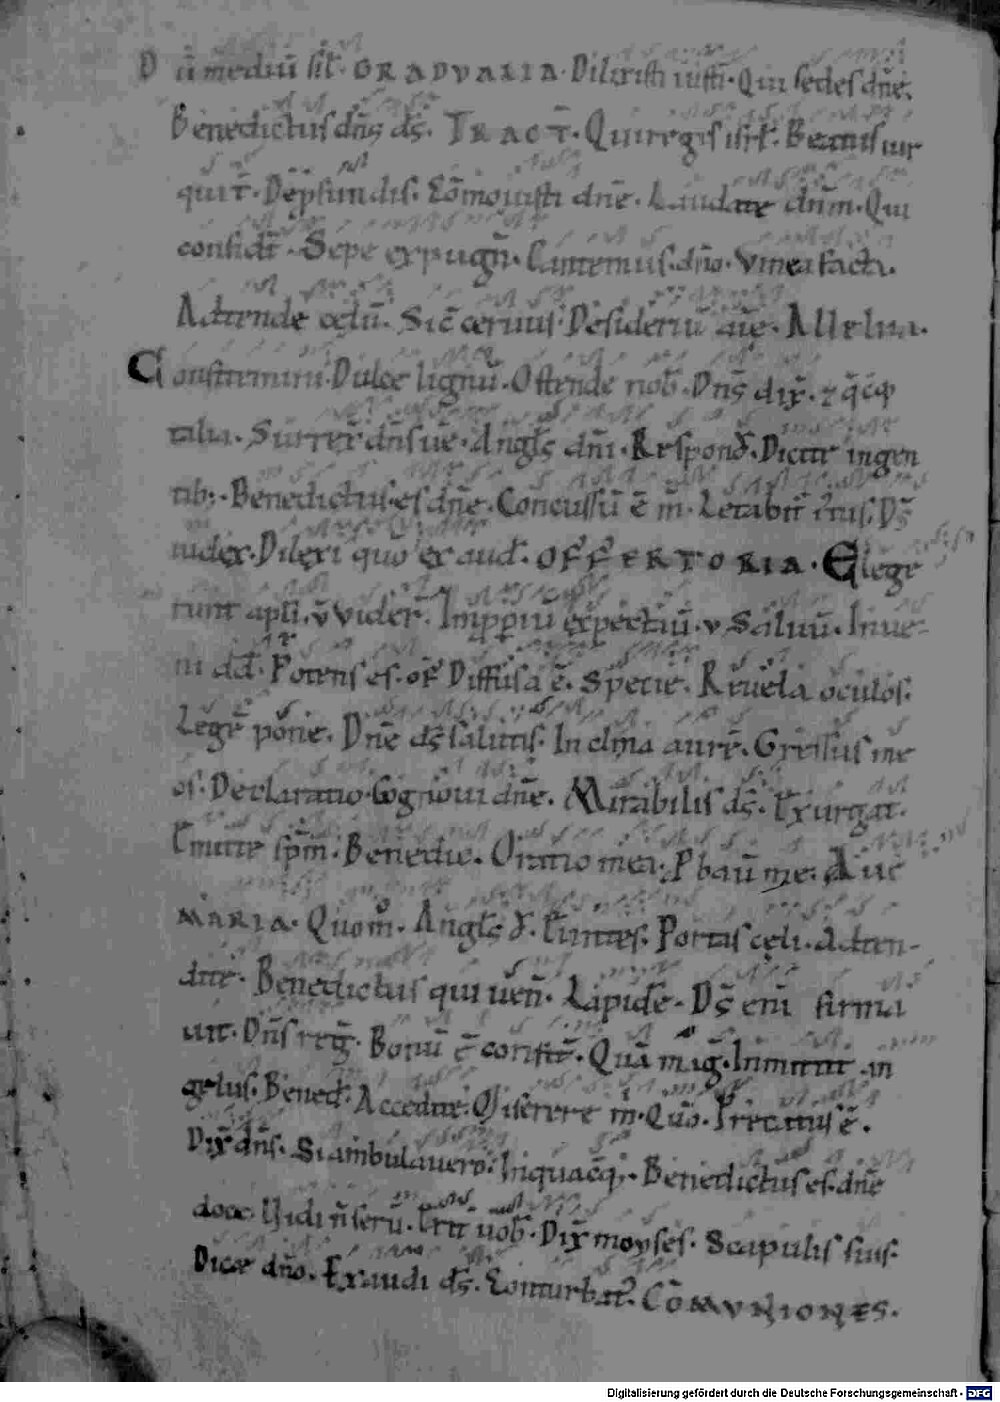 Dū mediū sił. GRADVALIA. Dilexisti iusti. Qui sedes dn̄e.
Benedictus dn̄s ds̄. TRACT̄. Qui regis isrł. Beatus uir
qui t̄. De ꝓfundis. Cōmouisti dn̄e. Laudate dn̄m. Qui
confidt̄. Sepe expugn̄. Cantemus dn̄o. Vinea facta.
Adtende cęlū. Sic̄ ceruus. Desideriū aīe. Alleluia.
Confitemini. Dulce lignū. Ostende nob̄. Dn̄s dix̄.
talia. Surrex̄ dn̄s ūe. Angłs dn̄i. Respond̄. Dicite in gen
tib; Benedictus es dn̄e. Concussū ē m̄. Letabit̄ iustus. Ds̄
iudex. Dilexi quo exaud̄. OFFERTORIA. Elege
runt apłi. v̄ Vider̄. Imꝑꝑiū expectāū. v Saluū. Inue-
ni dd̄. Potens es. of̄ Diffusa ē. Specie. Reuela oculos.
Legē pone. Dn̄e ds̄ salutis. Inclina aurē. Gressus me
os. Declaratio. Cognoui dn̄e. Mirabilis ds̄. Exurgat.
Emitte spm̄. Benedic. Oratio mea. Ꝓbauī me. Aue
MARIA. Quom̄. Angłs d̄. Euntes. Portas cęli. Adten-
dite. Benedictus qui uen̄. Lapide. Ds̄ enī firma
uit. Dn̄s reg̅. Bonū ē confitē. Quā mag̅. Inmittit an
gelus. Bened̄. Accedite. Miserere m̄. Quō. Precatus ē.
Dix̄ dn̄s. Si ambulauero. In quacq̄. Benedictus es dn̄e
doce. Uidi n̄ serū. Erit uob̄. Dix̄ moyses. Scapulis suis.
Dicite dn̄o. Exaudi ds̄. Conturbat̄. CŌMVNIONES.
Digitalisierung gefördert durch die Deutsche Forschungsgemeinschaft - DFG